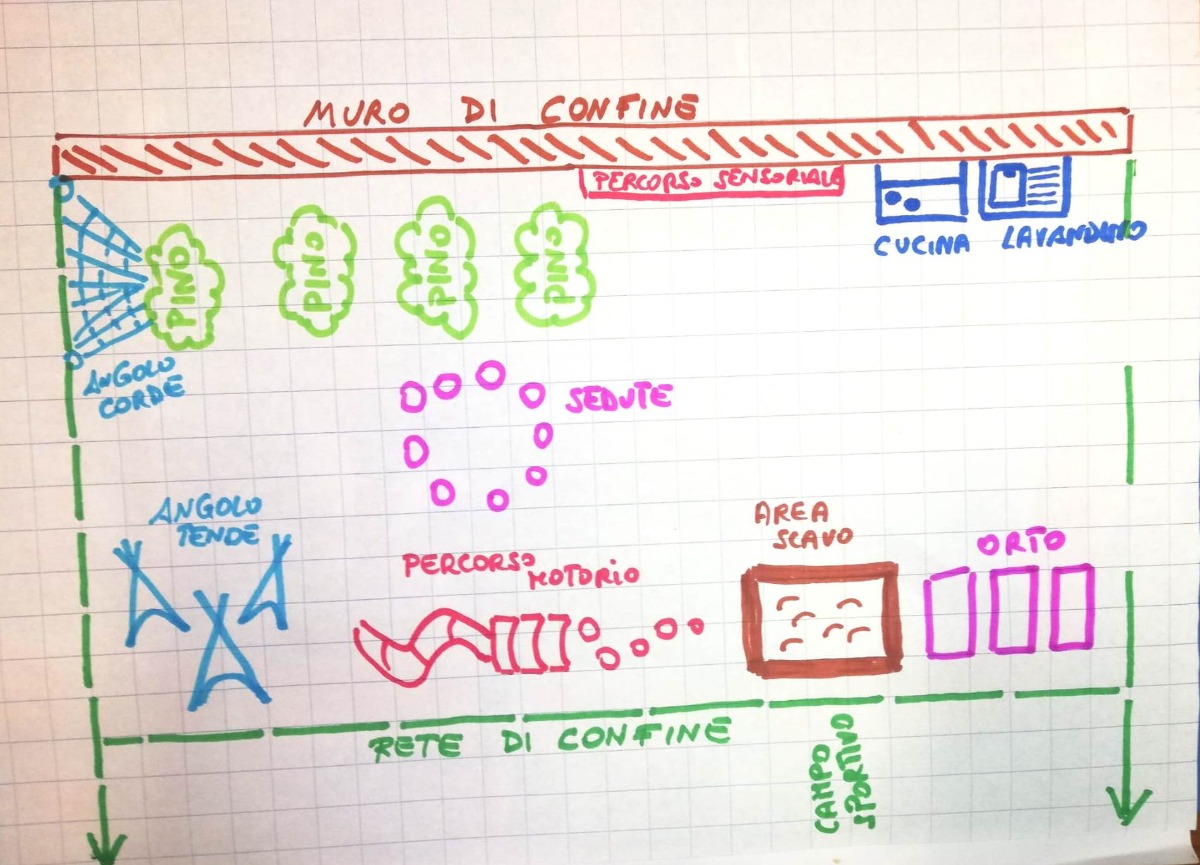 MURO DI CONFINE
PERCORSO SENSORIALE
CUCINA
LAVANDINO
PINO
PINO
PINO
PINO
ANGOLO
CORDE
SEDUTE
ANGOLO
TENDE
PERCORSO
MOTORIO
AREA
SCAVO
ORTO
RETE DI CONFINE
CAMPO
SPORTIVO